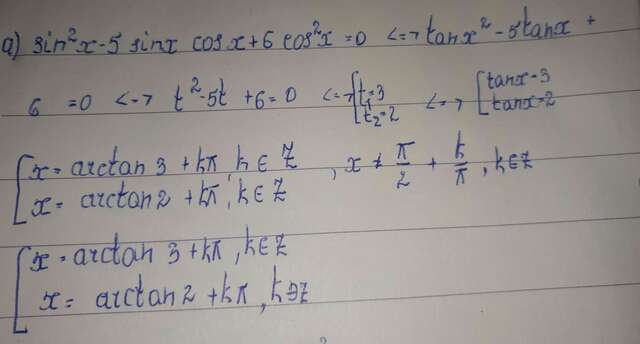 a) sin²x-5 sinx cosx+6 cos²x=0 <=> tanx²-5tanx +
6 =0 <=> t²-5t+6=0 <=> [t₁=3 t₂=2 <=> [tanx=3 tanx=2
[x= arctan 3 + kπ, k ∈ Z
x= arctan 2 + kπ, k ∈ Z , x ≠ π/2 + k/π, k∈Z
[x= arctan 3 + kπ, k∈Z
x= arctan 2 + kπ, k∋Z